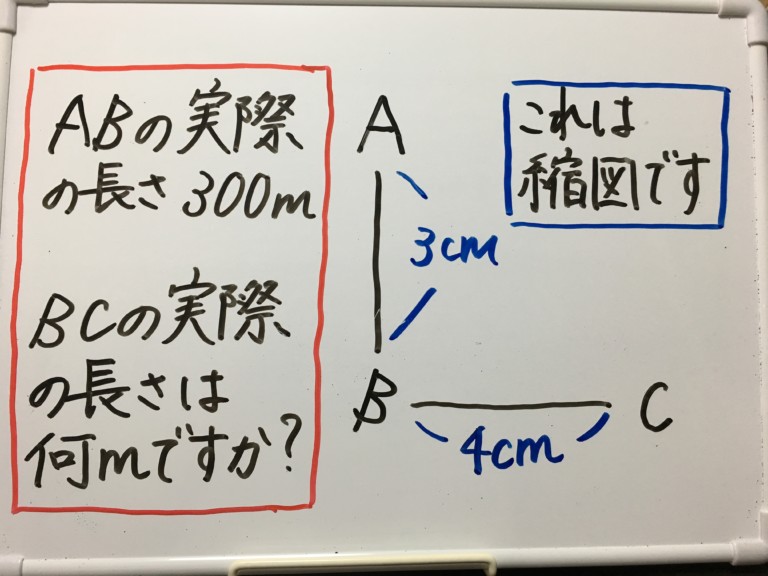 ABの実際
の長さ 300m
BCの実際
の長さは
何mですか?
A
3cm
B
C
4cm
これは
縮図です